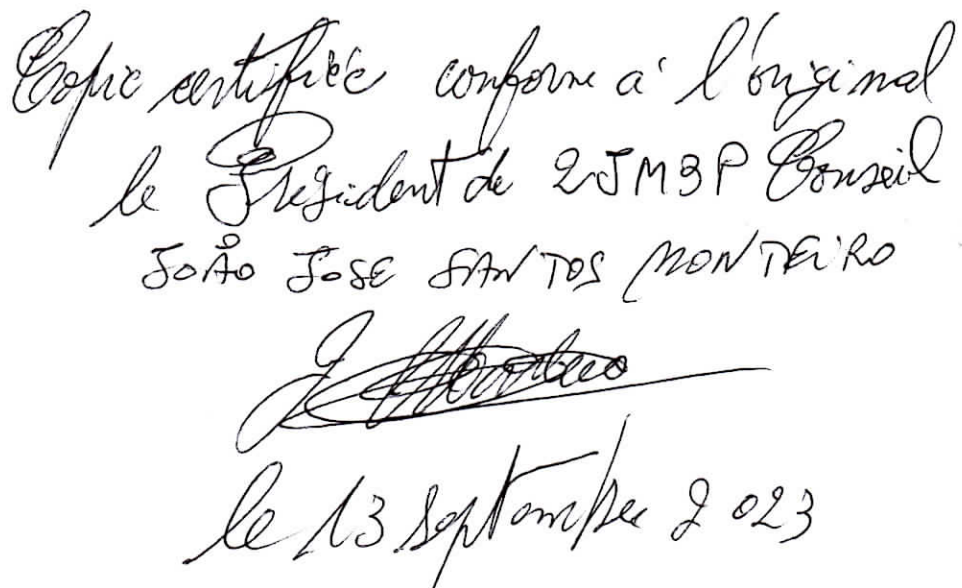 Copie certifiée conforme a' l'original
le Président de 2JM3P Conseil
JOÃO JOSE SANTOS MONTEIRO
le 13 Septembre 2023